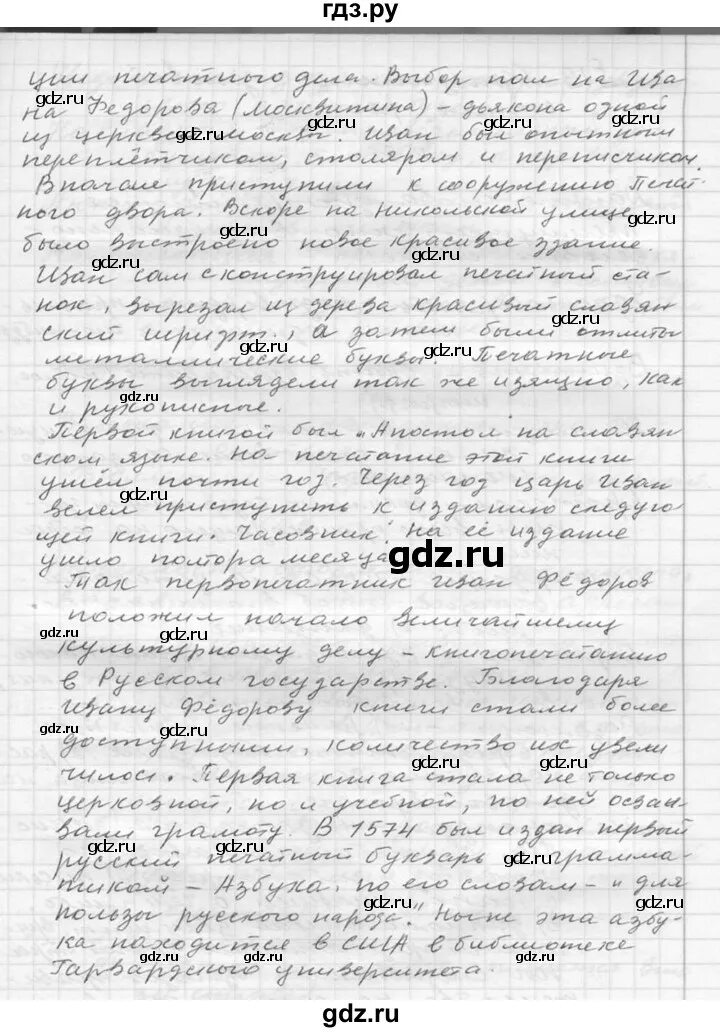 гдз.ру
ции печатного дела. Выбор пал на Ива
на Федорова (москвитина) – дьякона одной
из церквей москвы. Иван был опытным
переплётчиком, столяром и переписчиком.
Вначале приступили к сооружению Печат-
ного двора. Вскоре на никольской улице
было выстроено новое красивое здание.
Иван сам сконструировал печатный ста-
нок, вырезал из дерева красивый славян
ский шрифт, а затем были отлиты
металлические буквы. Печатные
буквы выглядели так же изящно, как
и рукописные.
Первой книгой был „Апостол" на славян
ском языке. На печатание этой книги
ушёл почти год. Через год царь Иван
велел приступить к изданию следую
щей книги. Часовник! На её издание
ушло полтора месяца
gdz.ru
Так первопечатник Иван Фёдоров
положил начало величайшему
культурному делу – книгопечатанию
в Русском государстве. Благодаря
Ивану Фёдорову книги стали более
доступными, количество их увели
чилось. Первая книга стала не только
церковной, но и учебной, по ней осваи-
вали грамоту. В 1574 был издан первый
русский печатный букварь грамма-
тикой – Азбука, по его словам – „для
пользы русского народа." Ныне эта азбу-
ка находится в США в библиотеке
Гарвардского университета.
gdz.ru